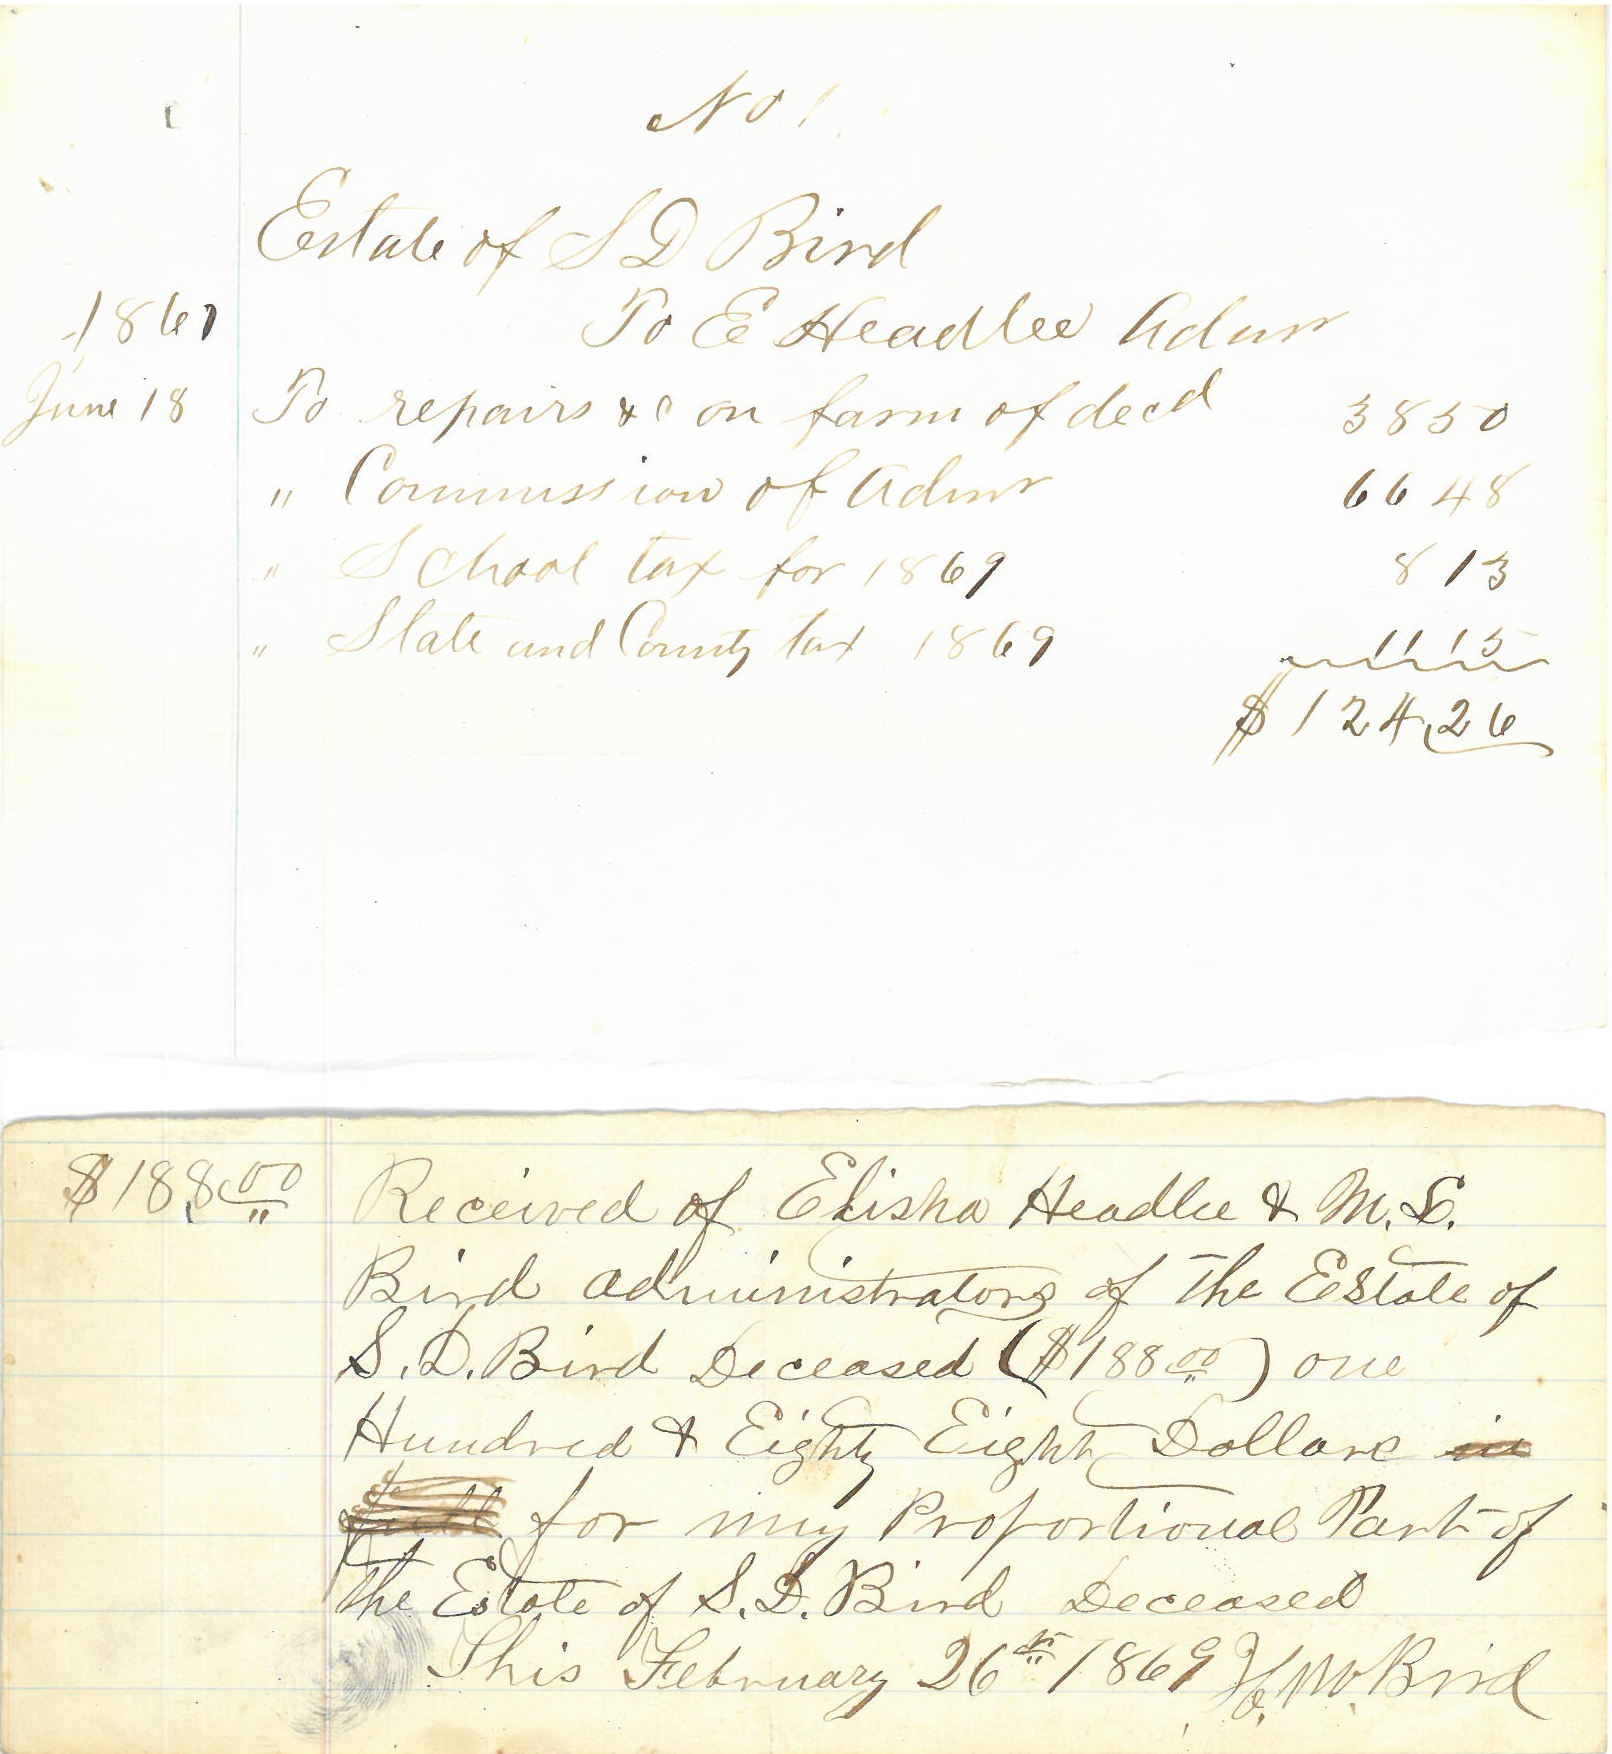 No 1
Estate of S D Bird
1869
To E Headlee Admr
June 18 To repairs &c on farm of decd 38 50
" Commission of Admr 66 48
" School tax for 1869 8 13
" State and County tax 1869 11 15
$ 124.26
$188.00 Received of Elisha Headlee & M. L.
Bird administrators of the Estate of
S. D. Bird Deceased ($188.00) one
Hundred & Eighty Eight Dollars in
full for my Proportional Part of
the Estate of S. D. Bird Deceased
This February 26th 1869 Bird